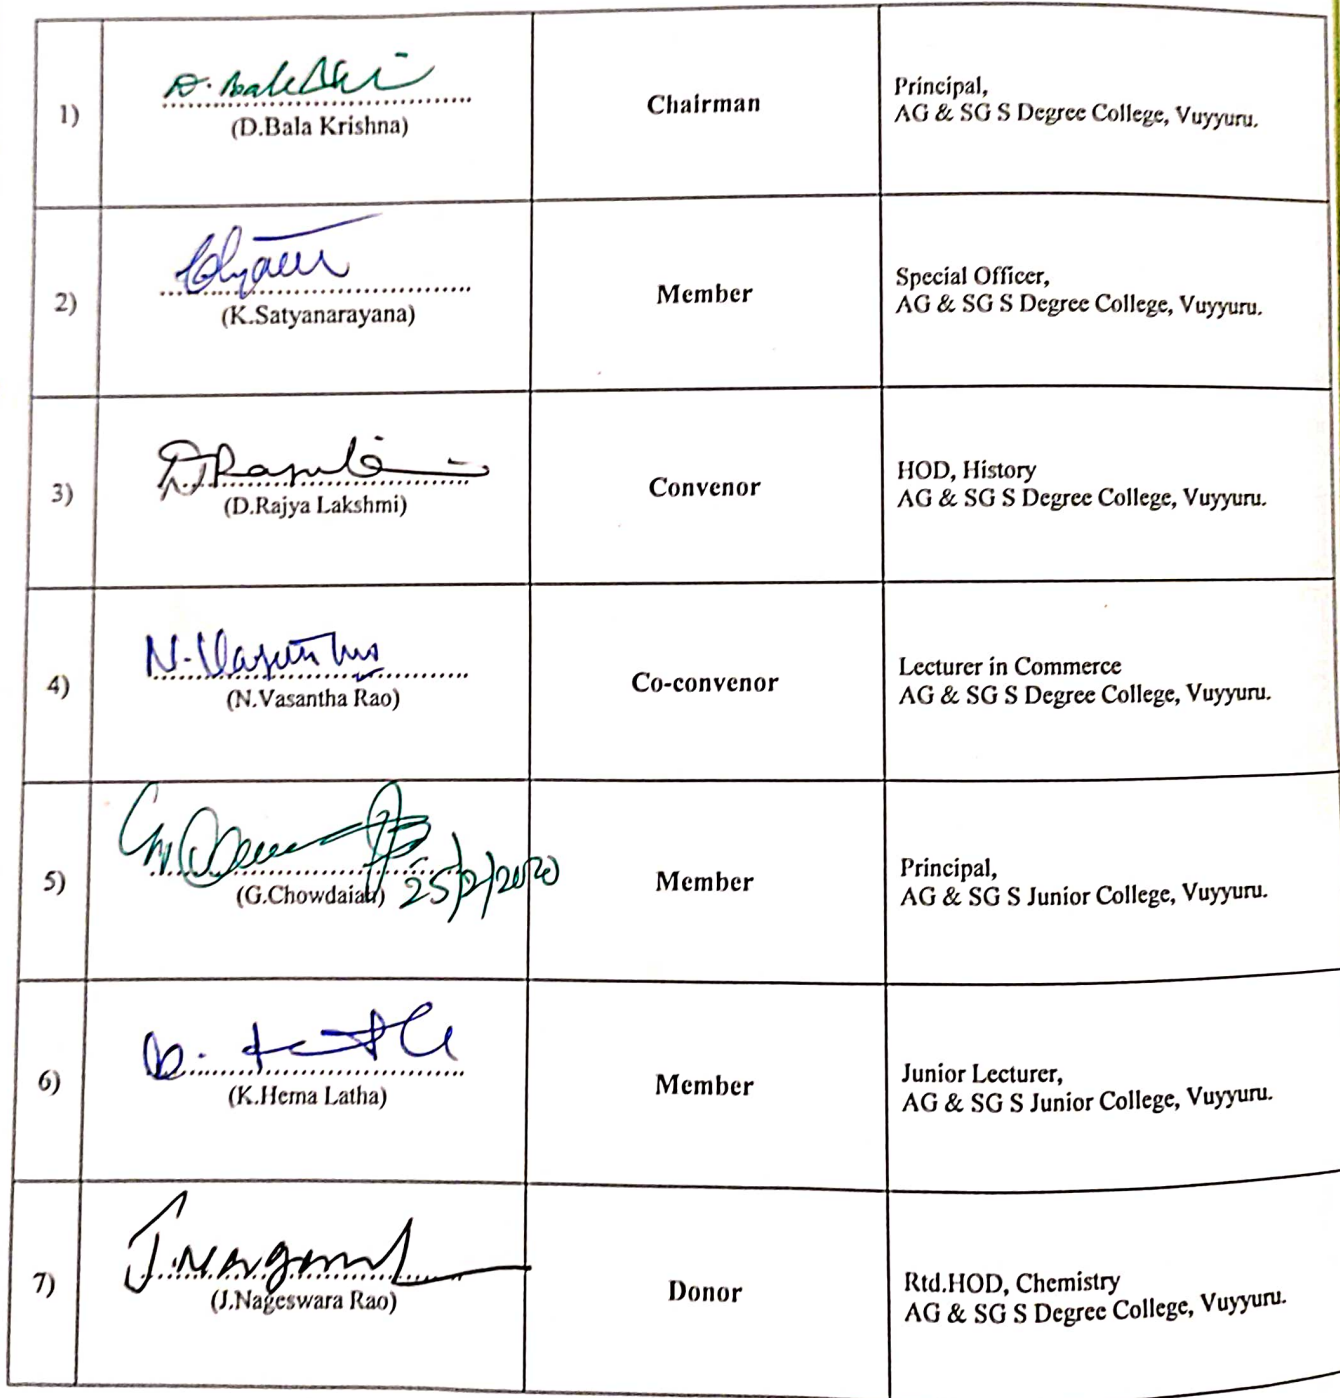 1)
D. Bala
(D.Bala Krishna)
Chairman
Principal,
AG & SG S Degree College, Vuyyuru.
2)
(K.Satyanarayana)
Member
Special Officer,
AG & SG S Degree College, Vuyyuru.
3)
(D.Rajya Lakshmi)
Convenor
HOD, History
AG & SG S Degree College, Vuyyuru.
4)
(N.Vasantha Rao)
Co-convenor
Lecturer in Commerce
AG & SG S Degree College, Vuyyuru.
5)
(G.Chowdaiah)
25/2/2020
Member
Principal,
AG & SG S Junior College, Vuyyuru.
6)
(K.Hema Latha)
Member
Junior Lecturer,
AG & SG S Junior College, Vuyyuru.
7)
(J.Nageswara Rao)
Donor
Rtd.HOD, Chemistry
AG & SG S Degree College, Vuyyuru.